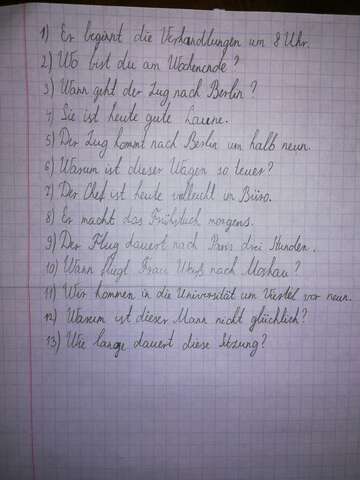 1) Er beginnt die Verhandlungen um 8 Uhr.
2) Wo bist du am Wochenende?
3) Wann geht der Zug nach Berlin?
4) Sie ist heute gute Laune.
5) Der Zug kommt nach Berlin um halb neun.
6) Warum ist dieser Wagen so teuer?
7) Der Chef ist heute vielleicht im Büro.
8) Er macht das Frühstück morgens.
9) Der Flug dauert nach Paris drei Stunden.
10) Wann fliegt Frau Weiß nach Moskau?
11) Wir kommen in die Universität um Viertel vor neun.
12) Warum ist dieser Mann nicht glücklich?
13) Wie lange dauert diese Sitzung?